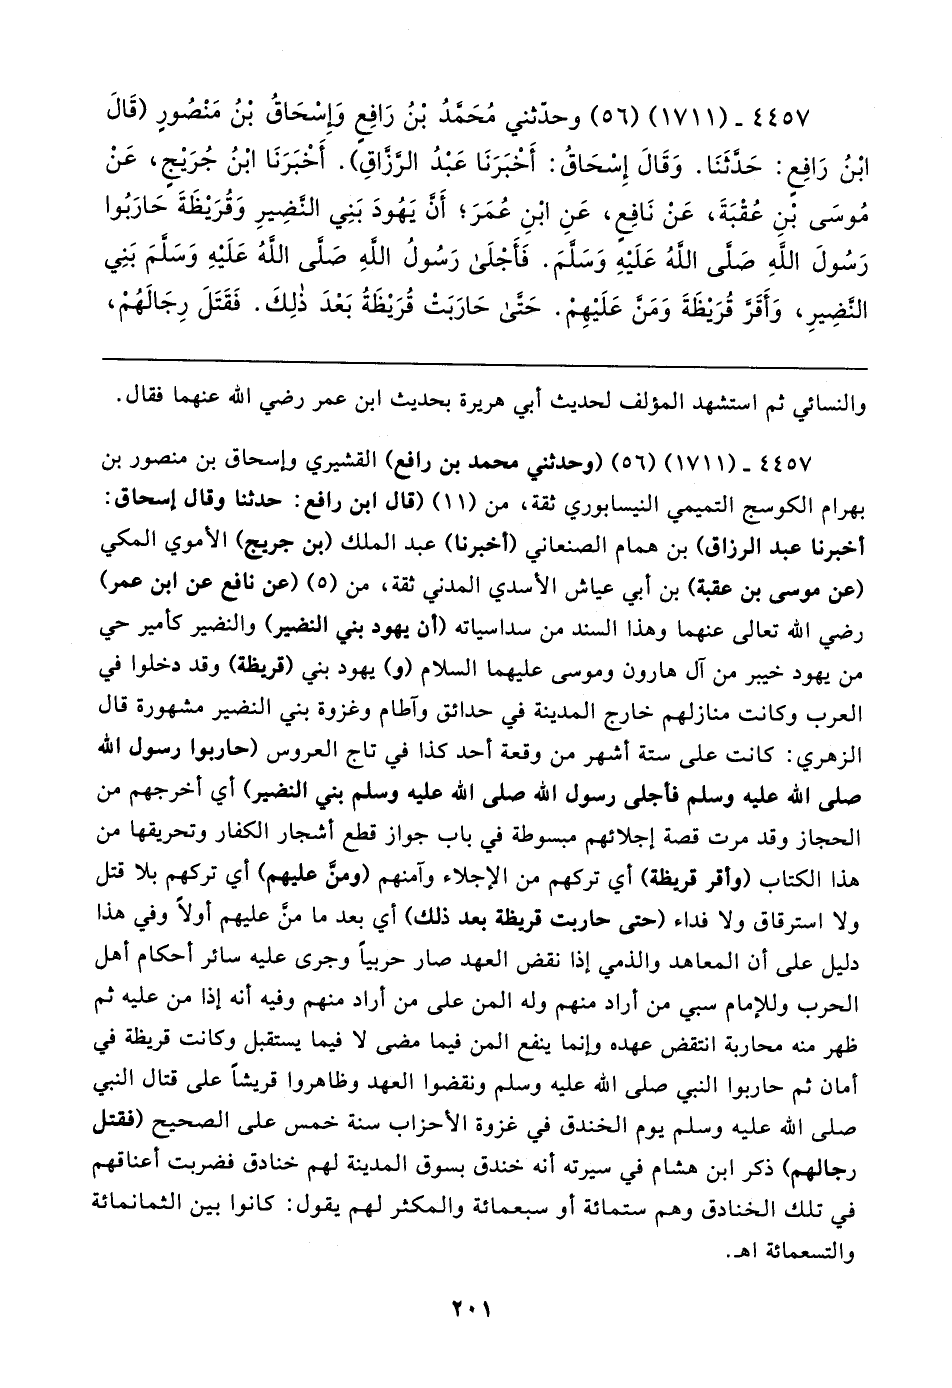 ٤٤٥٧ ـ (١٧١١) (٥٦) وحدّثني مُحَمَّدُ بْنُ رَافِعٍ وَإِسْحَاقُ بْنُ مَنْصُورٍ (قَالَ
ابْنُ رَافِعٍ: حَدَّثَنَا. وَقَالَ إِسْحَاقُ: أَخْبَرَنَا عَبْدُ الرَّزَّاقِ). أَخْبَرَنَا ابْنُ جُرَيْجٍ، عَنْ
مُوسَى بْنِ عُقْبَةَ، عَنْ نَافِعٍ، عَنِ ابْنِ عُمَرَ؛ أَنَّ يَهُودَ بَنِي النَّضِيرِ وَقُرَيْظَةَ حَارَبُوا
رَسُولَ اللَّهِ صَلَّى اللَّهُ عَلَيْهِ وَسَلَّمَ. فَأَجْلَىٰ رَسُولُ اللَّهِ صَلَّى اللَّهُ عَلَيْهِ وَسَلَّمَ بَنِي
النَّضِيرِ، وَأَقَرَّ قُرَيْظَةَ وَمَنَّ عَلَيْهِمْ. حَتَّىٰ حَارَبَتْ قُرَيْظَةُ بَعْدَ ذٰلِكَ. فَقَتَلَ رِجَالَهُمْ،
والنسائي ثم استشهد المؤلف لحديث أبي هريرة بحديث ابن عمر رضي الله عنهما فقال.
٤٤٥٧ ـ (١٧١١) (٥٦) (وحدثني محمد بن رافع) القشيري وإسحاق بن منصور بن
بهرام الكوسج التميمي النيسابوري ثقة، من (١١) (قال ابن رافع: حدثنا وقال إسحاق:
أخبرنا عبد الرزاق) بن همام الصنعاني (أخبرنا) عبد الملك (بن جريج) الأموي المكي
(عن موسى بن عقبة) بن أبي عياش الأسدي المدني ثقة، من (٥) (عن نافع عن ابن عمر)
رضي الله تعالى عنهما وهذا السند من سداسياته (أن يهود بني النضير) والنضير كأمير حي
من يهود خيبر من آل هارون وموسى عليهما السلام (و) يهود بني (قريظة) وقد دخلوا في
العرب وكانت منازلهم خارج المدينة في حدائق وآطام وغزوة بني النضير مشهورة قال
الزهري: كانت على ستة أشهر من وقعة أحد كذا في تاج العروس (حاربوا رسول الله
صلى الله عليه وسلم فأجلى رسول الله صلى الله عليه وسلم بني النضير) أي أخرجهم من
الحجاز وقد مرت قصة إجلائهم مبسوطة في باب جواز قطع أشجار الكفار وتحريقها من
هذا الكتاب (وأقر قريظة) أي تركهم من الإجلاء وآمنهم (ومنَّ عليهم) أي تركهم بلا قتل
ولا استرقاق ولا فداء (حتى حاربت قريظة بعد ذلك) أي بعد ما منَّ عليهم أولاً وفي هذا
دليل على أن المعاهد والذمي إذا نقض العهد صار حربياً وجرى عليه سائر أحكام أهل
الحرب وللإمام سبي من أراد منهم وله المن على من أراد منهم وفيه أنه إذا من عليه ثم
ظهر منه محاربة انتقض عهده وإنما ينفع المن فيما مضى لا فيما يستقبل وكانت قريظة في
أمان ثم حاربوا النبي صلى الله عليه وسلم ونقضوا العهد وظاهروا قريشاً على قتال النبي
صلى الله عليه وسلم يوم الخندق في غزوة الأحزاب سنة خمس على الصحيح (فقتل
رجالهم) ذكر ابن هشام في سيرته أنه خندق بسوق المدينة لهم خنادق فضربت أعناقهم
في تلك الخنادق وهم ستمائة أو سبعمائة والمكثر لهم يقول: كانوا بين الثمانمائة
والتسعمائة اهـ.
٢٠١